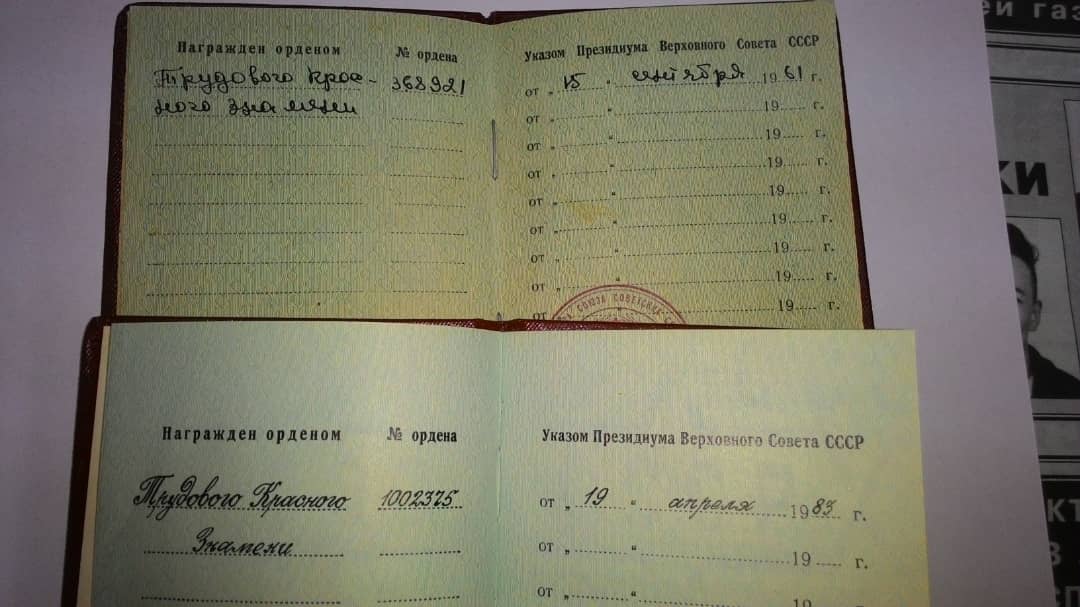 Награжден орденом № ордена Указом Президиума Верховного Совета СССР
Трудового Крас- 368921 от „ 15 “ сентября 1961 г.
ного знамени от „ “ 19 г.
от „ “ 19 г.
от „ “ 19 г.
от „ “ 19 г.
от „ “ 19 г.
от „ “ 19 г.
от „ “ 19 г.
от „ “ 19 г.
СОЮЗА СОВЕТСКИХ
Награжден орденом № ордена Указом Президиума Верховного Совета СССР
Трудового Красного 1002375 от „ 19 “ апреля 1983 г.
Знамени от „ “ 19 г.
от „ “ 19
ей газ
КИ
КТ
В
СП